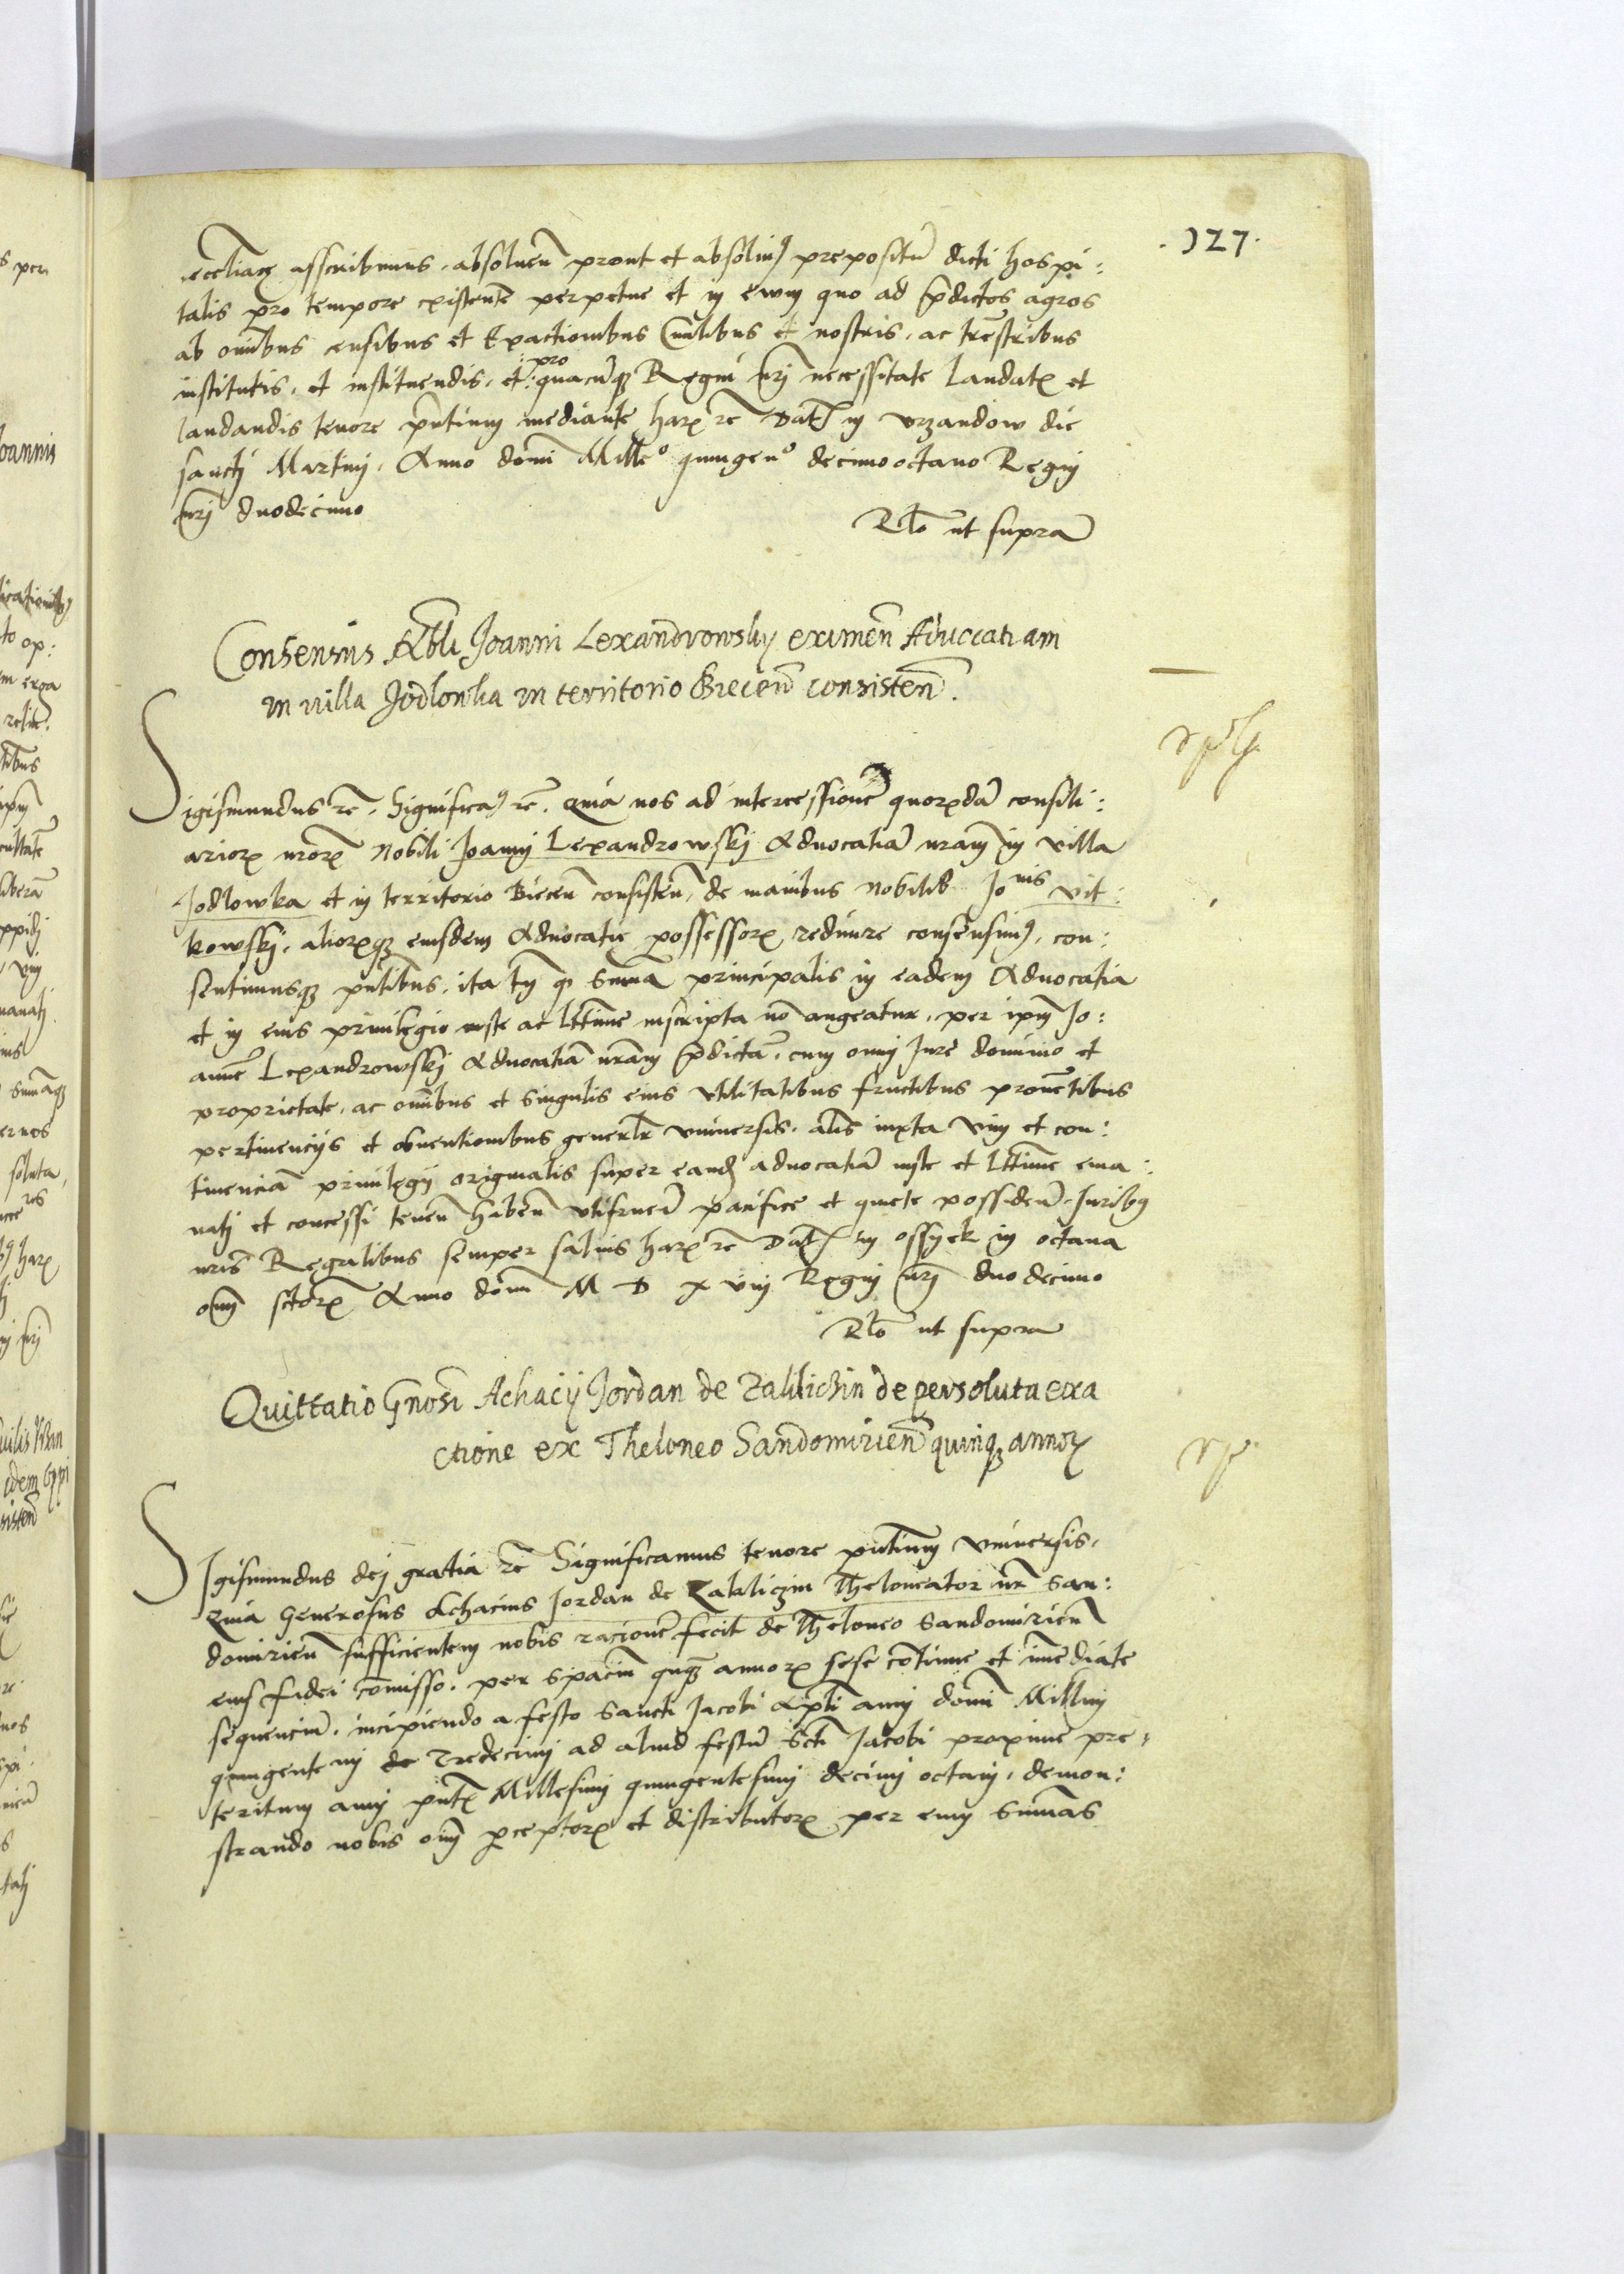 .127.
eccliaꝝ asscribimus, absoluen̄ prout et absoluimꝰ prepositū dicti hospi:
talis pro tempore existentē perpetue et in ewm quo ad p̄dictos agros
ab om̄ibus censibus et Exactionibus Ciuilibus et nostris, ac trēstribus
institutis, et instituendis, et :pro: quacūqꝫ Regni nr̄j necessitate laudatꝭ et
laudandis tenore pn̄tium mediante harꝝ rē Datꝭ in vrzandow die
sancti Martinj, Anno domi Milleᵒ quingenᵒ decimo octauo Regnj
nr̄j duodecimo
Rlō ut supra
Consensus Nobli Joanni Lexandrowsky eximen̄ Aduocatiam
in villa Jodlowka in territorio Biecen̄ consisten̄.
Sigismundus rē. Significamꝰ rē. Quia nos ad intercessionē quorꝝdā consili:
ariorꝝ nr̄orꝝ Nobili Joanni Lexandrowskj Aduocatiā nram̄ in villa
Jodlowka et in territorio Biecen̄ consisten̄, de manibus Nobiliū Joⁿⁱˢ vit:
kowskj, aliorꝝqꝫ eiusdem Aduocatie possessorꝝ redimere consensimꝰ, con:
sentimusqꝫ pn̄tibus, ita tn̄ qꝫ Suma principalis in eadem Aduocatia
et in eius priuilegio iuste ac lttime inscripta nō augeatur, per ipm̄ Jo:
annē Lexandrowskj Aduocatiā nram̄ p̄dictā, cum omni Jure dominio et
proprietate, ac om̄ibus et singulis eius vtilitatibus fructibus prouētibus
pertinencijs et obuentionibus generlr vniuersis, alis iuxta vim et con:
tinenciā priuilegij originalis super eandꝫ aduocatiā iuste et lttime ema:
natj et concessi tenen̄ haben̄ vtifruen̄ pacifice et quiete possiden̄. Juribꝰ
nris Regalibus semper saluis harꝝ rē Datꝭ in ossyek in octaua
om̄ sctorꝝ Anno domi M D x viij Regnj nr̄j duodecimo
Rlō ut supra
Quittatio Gnosi Achacij Jordan de Zaklichin de persoluta exa
ctione ex Theloneo Sandomirien̄ quinqꝫ annorꝝ
SIgismundus dej gratia rē Significamus tenore pn̄tium vniuersis,
Quia Generosus Achacius Jordan de Zakliczin Theloneator nr̄ San:
domirien̄ sufficientem nobis racionē fecit de Theloneo Sandomirien̄
eius fidei comisso, per spaciū qnqꝫ annorꝝ sese cōtinue et imediate
sequenciū, incipiendo a festo Sancti Jacobi Apli anni domi Millmi
quingentemi de Tredecimi ad aliud festū Scti Jacobi proxime pre:
teritum anni pn̄tꝭ Millesimi quingentesimi decimi octaui, demon:
strando nobis om̄ ꝑceptorꝝ et distributorꝝ per eum Sumas